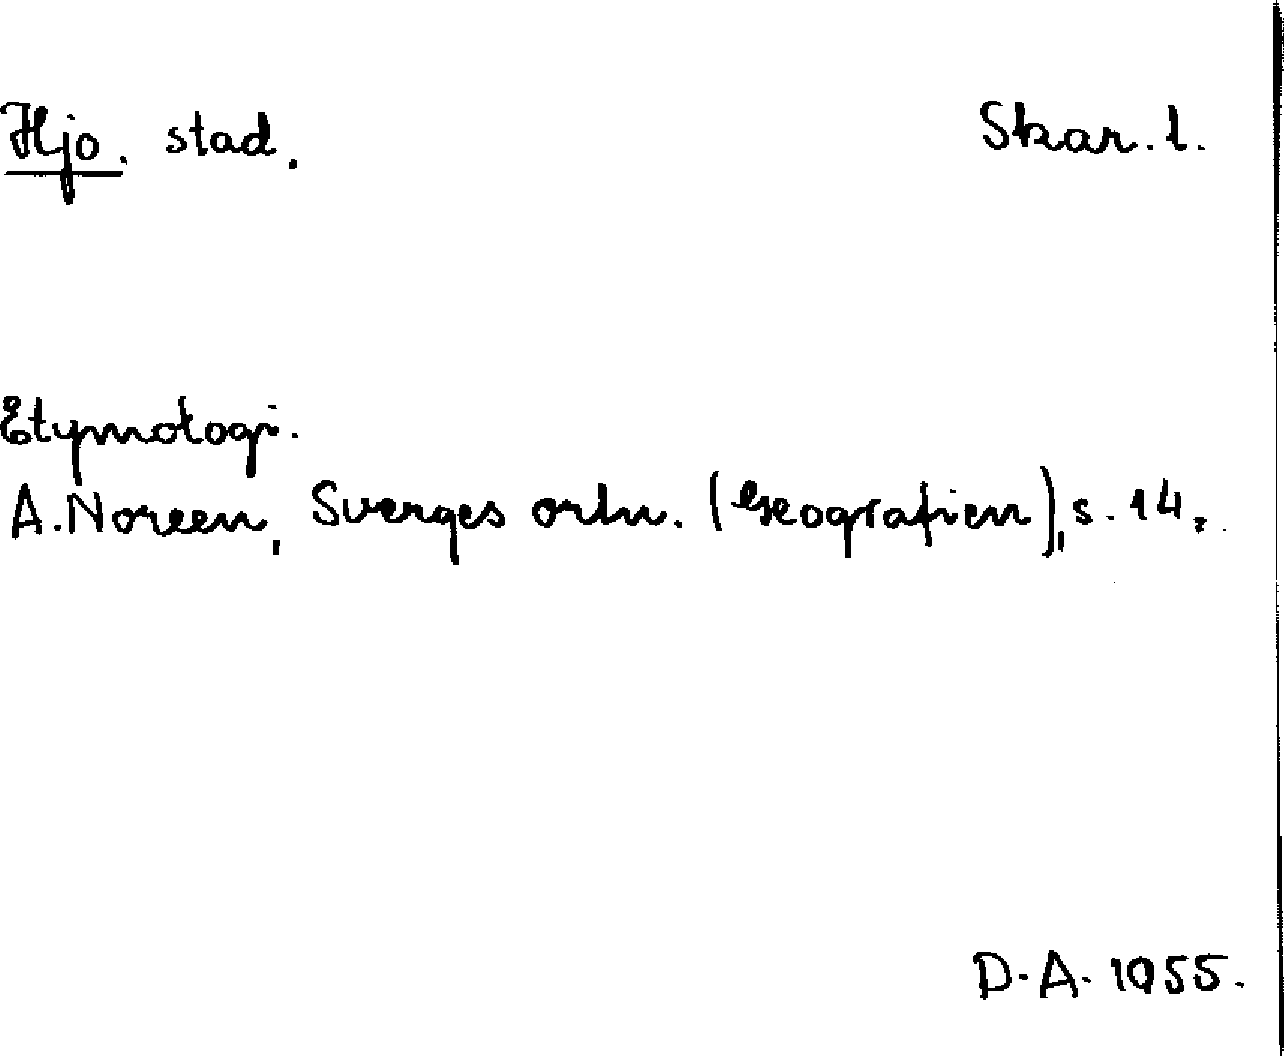 Hjo. stad. Skar. l.
Etymologi.
A. Noreen, Sverges ortn. (Geografien), s. 14.
D. A. 1955.